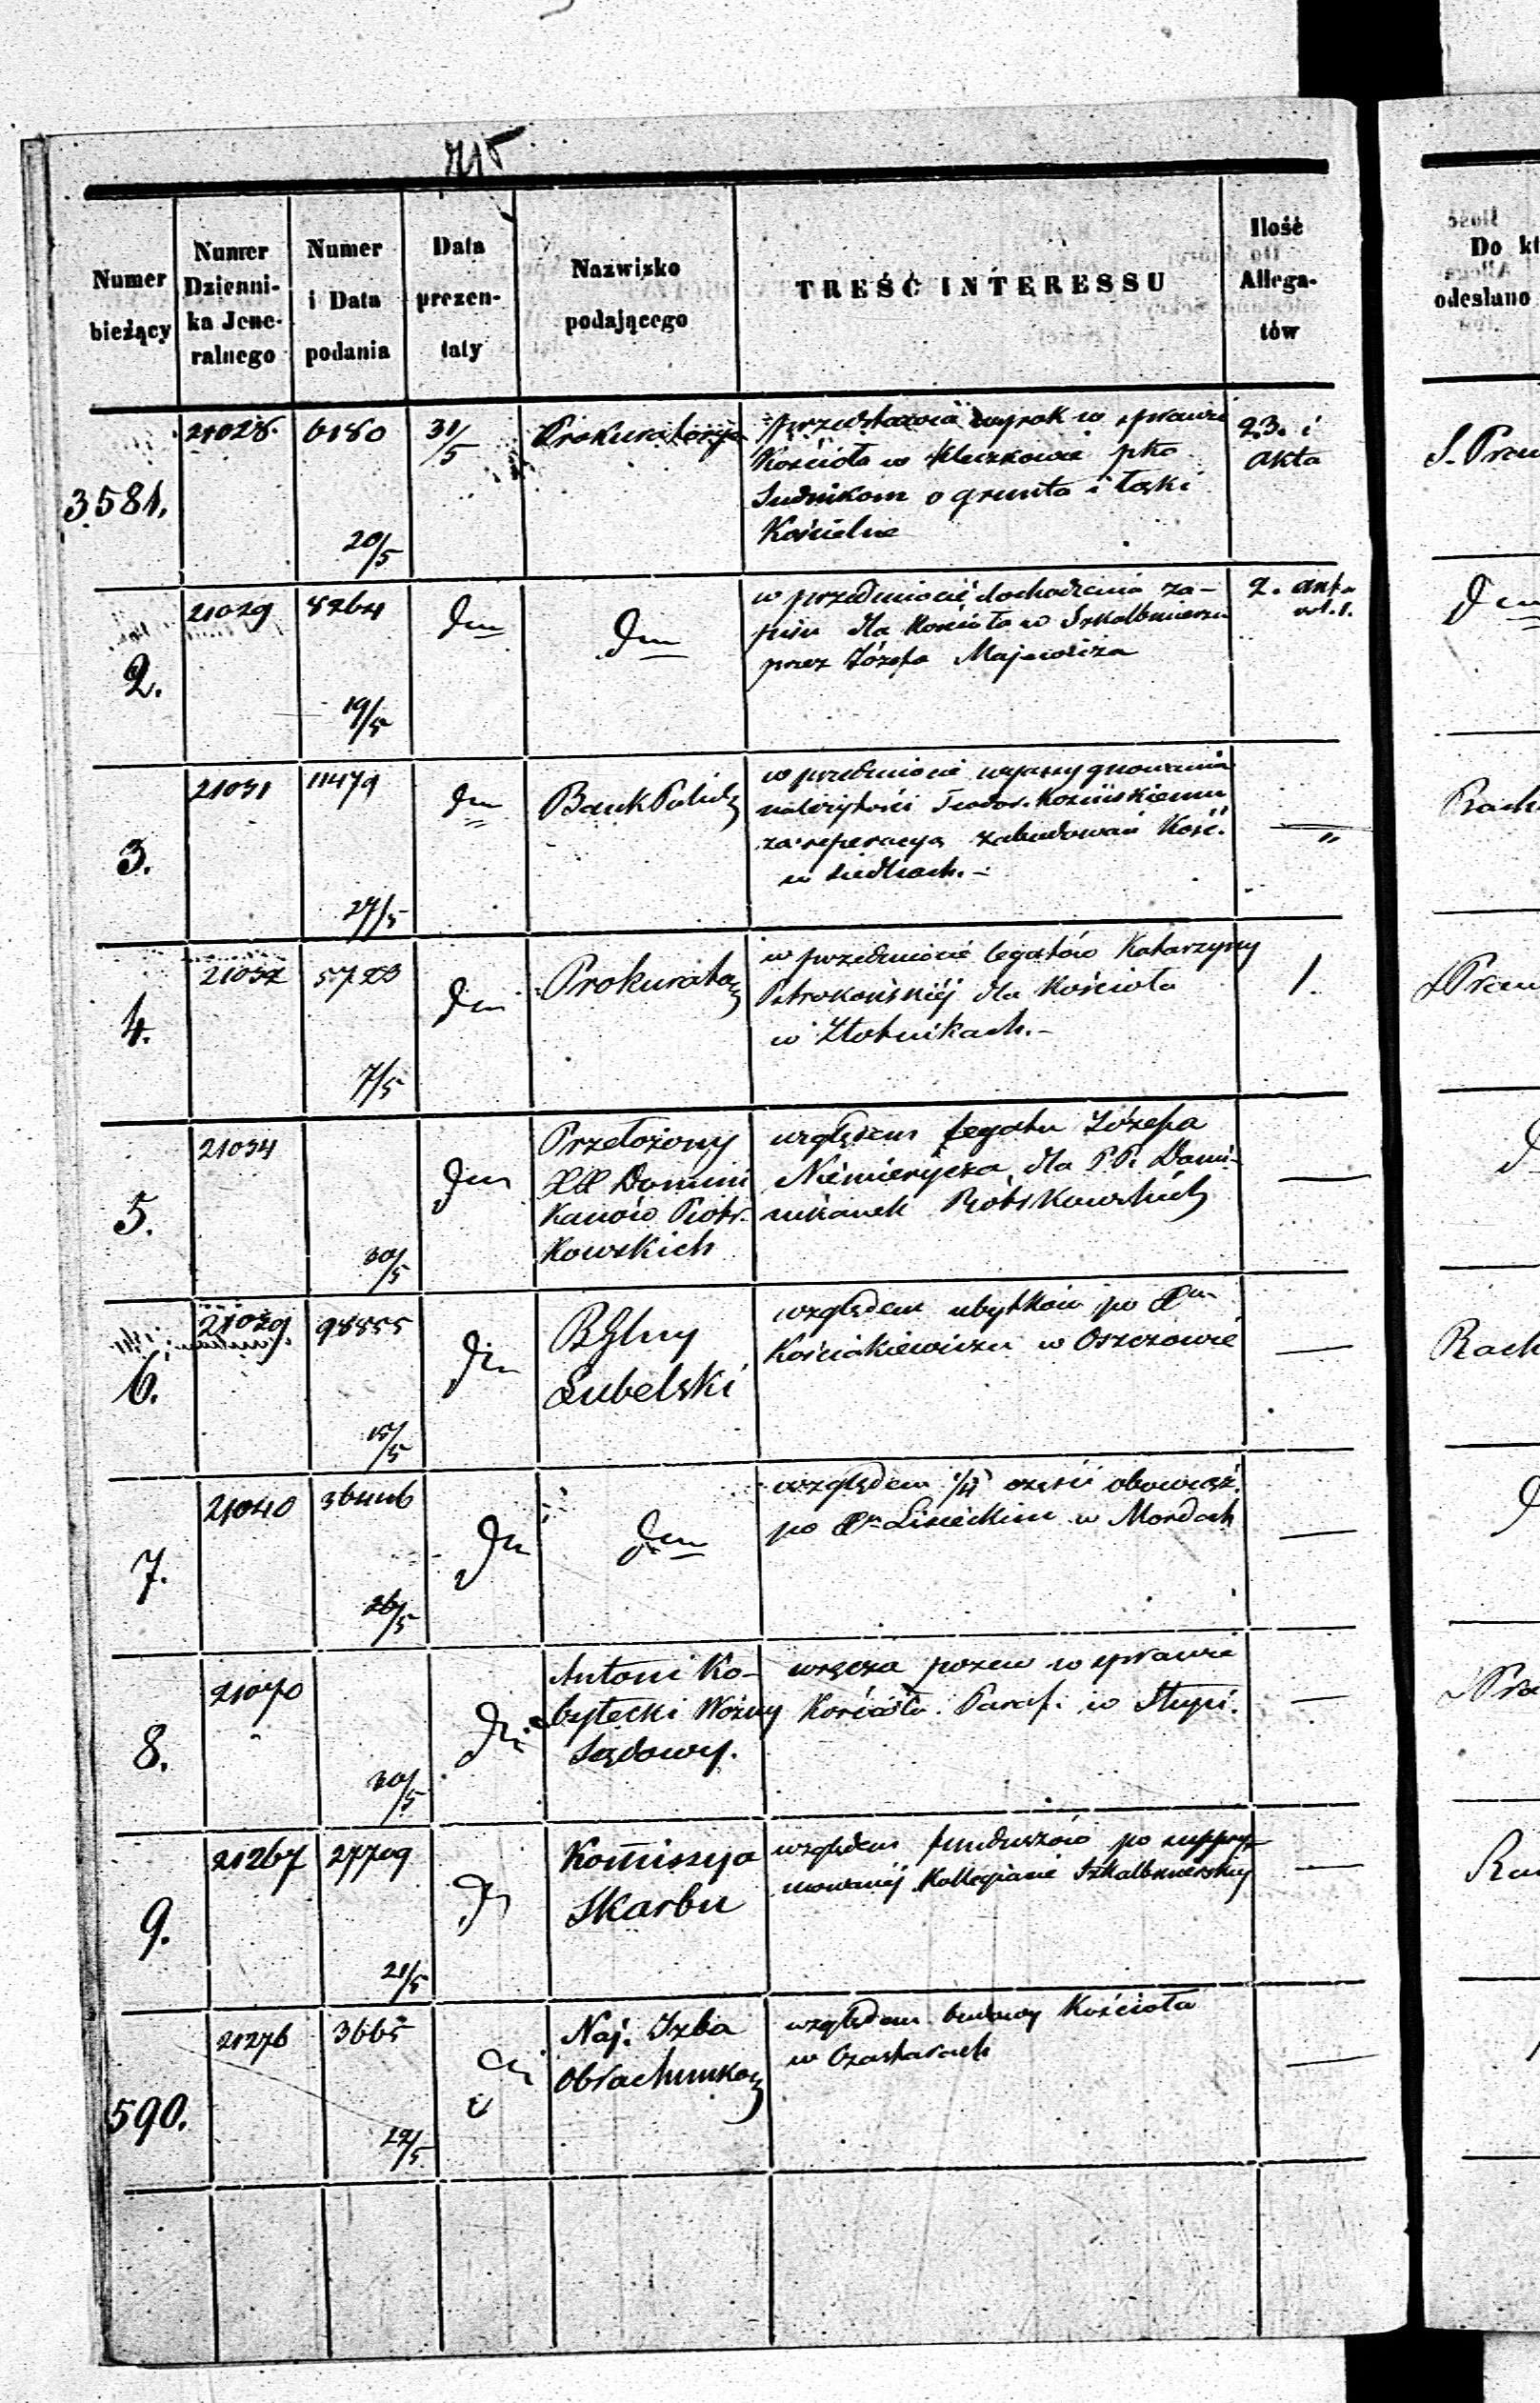 715
Numer bieżący
Numer Dzienni-ka Jene-ralnego
Numer i Data podania
Data prezen-taty
Nazwisko podającego
TREŚĆ INTERESSU
Ilość Allega-tów
Do
odesłano
3581.
21028.
6180
20/5
31/5
Prokuratorya
przedstawia wyrok w sprawie
Kościoła w Kleczkowie pko
Sudnikom o grunta i łąki
Kościelne
23. i
akta
2.
21029
8264
19/5
dm
dm
w przedmiocie dochodzenia za-
pisu dla Kościoła w Szkalbmierzu
przez Józefa Majewicza
2.
3.
21031
11479
27/5
dm
Bank Polski
w przedmiocie wyassygnowania
należytości Teodor.
za reperacyą zabudowań Kość.
w Siedlcach.-
"
4.
21032
5723
7/5
dm
Prokurator
w przedmiocie legatów Katarzyny
dla Kościoła
w Złotnikach.-
1.
5.
21034
30/5
dm
Przełożony
XX Domini
kanów Piotr-
kowskich
względem legatu Józefa
Niemierycza dla PP. Domi-
nikanek Piotrkowskich
6.
21039
98855
15/5
dm
RGlny
Lubelski
względem ubytków po Xm
Kościakiewiczu w Oszczowie
Rach
7.
21040
36446
26/5
dm
dm
względem 1/4 części obowiąz.
po Xm Lisieckim w Mordach
8.
21070
30/5
dm
Antoni Ko-
byłecki Woźny
Sądowy.
wręcza pozew w sprawie
Kościoła Paraf. w Słupi.
9.
21267
27709
21/5
dm
Kommissya
Skarbu
względem funduszów po suppry-
mowanéj Kollegiacie Szkalbmierskiej
590.
21276
3665
22/5
Naj. Izba
Obrachunkow
względem budowy Kościoła
w Czastarach